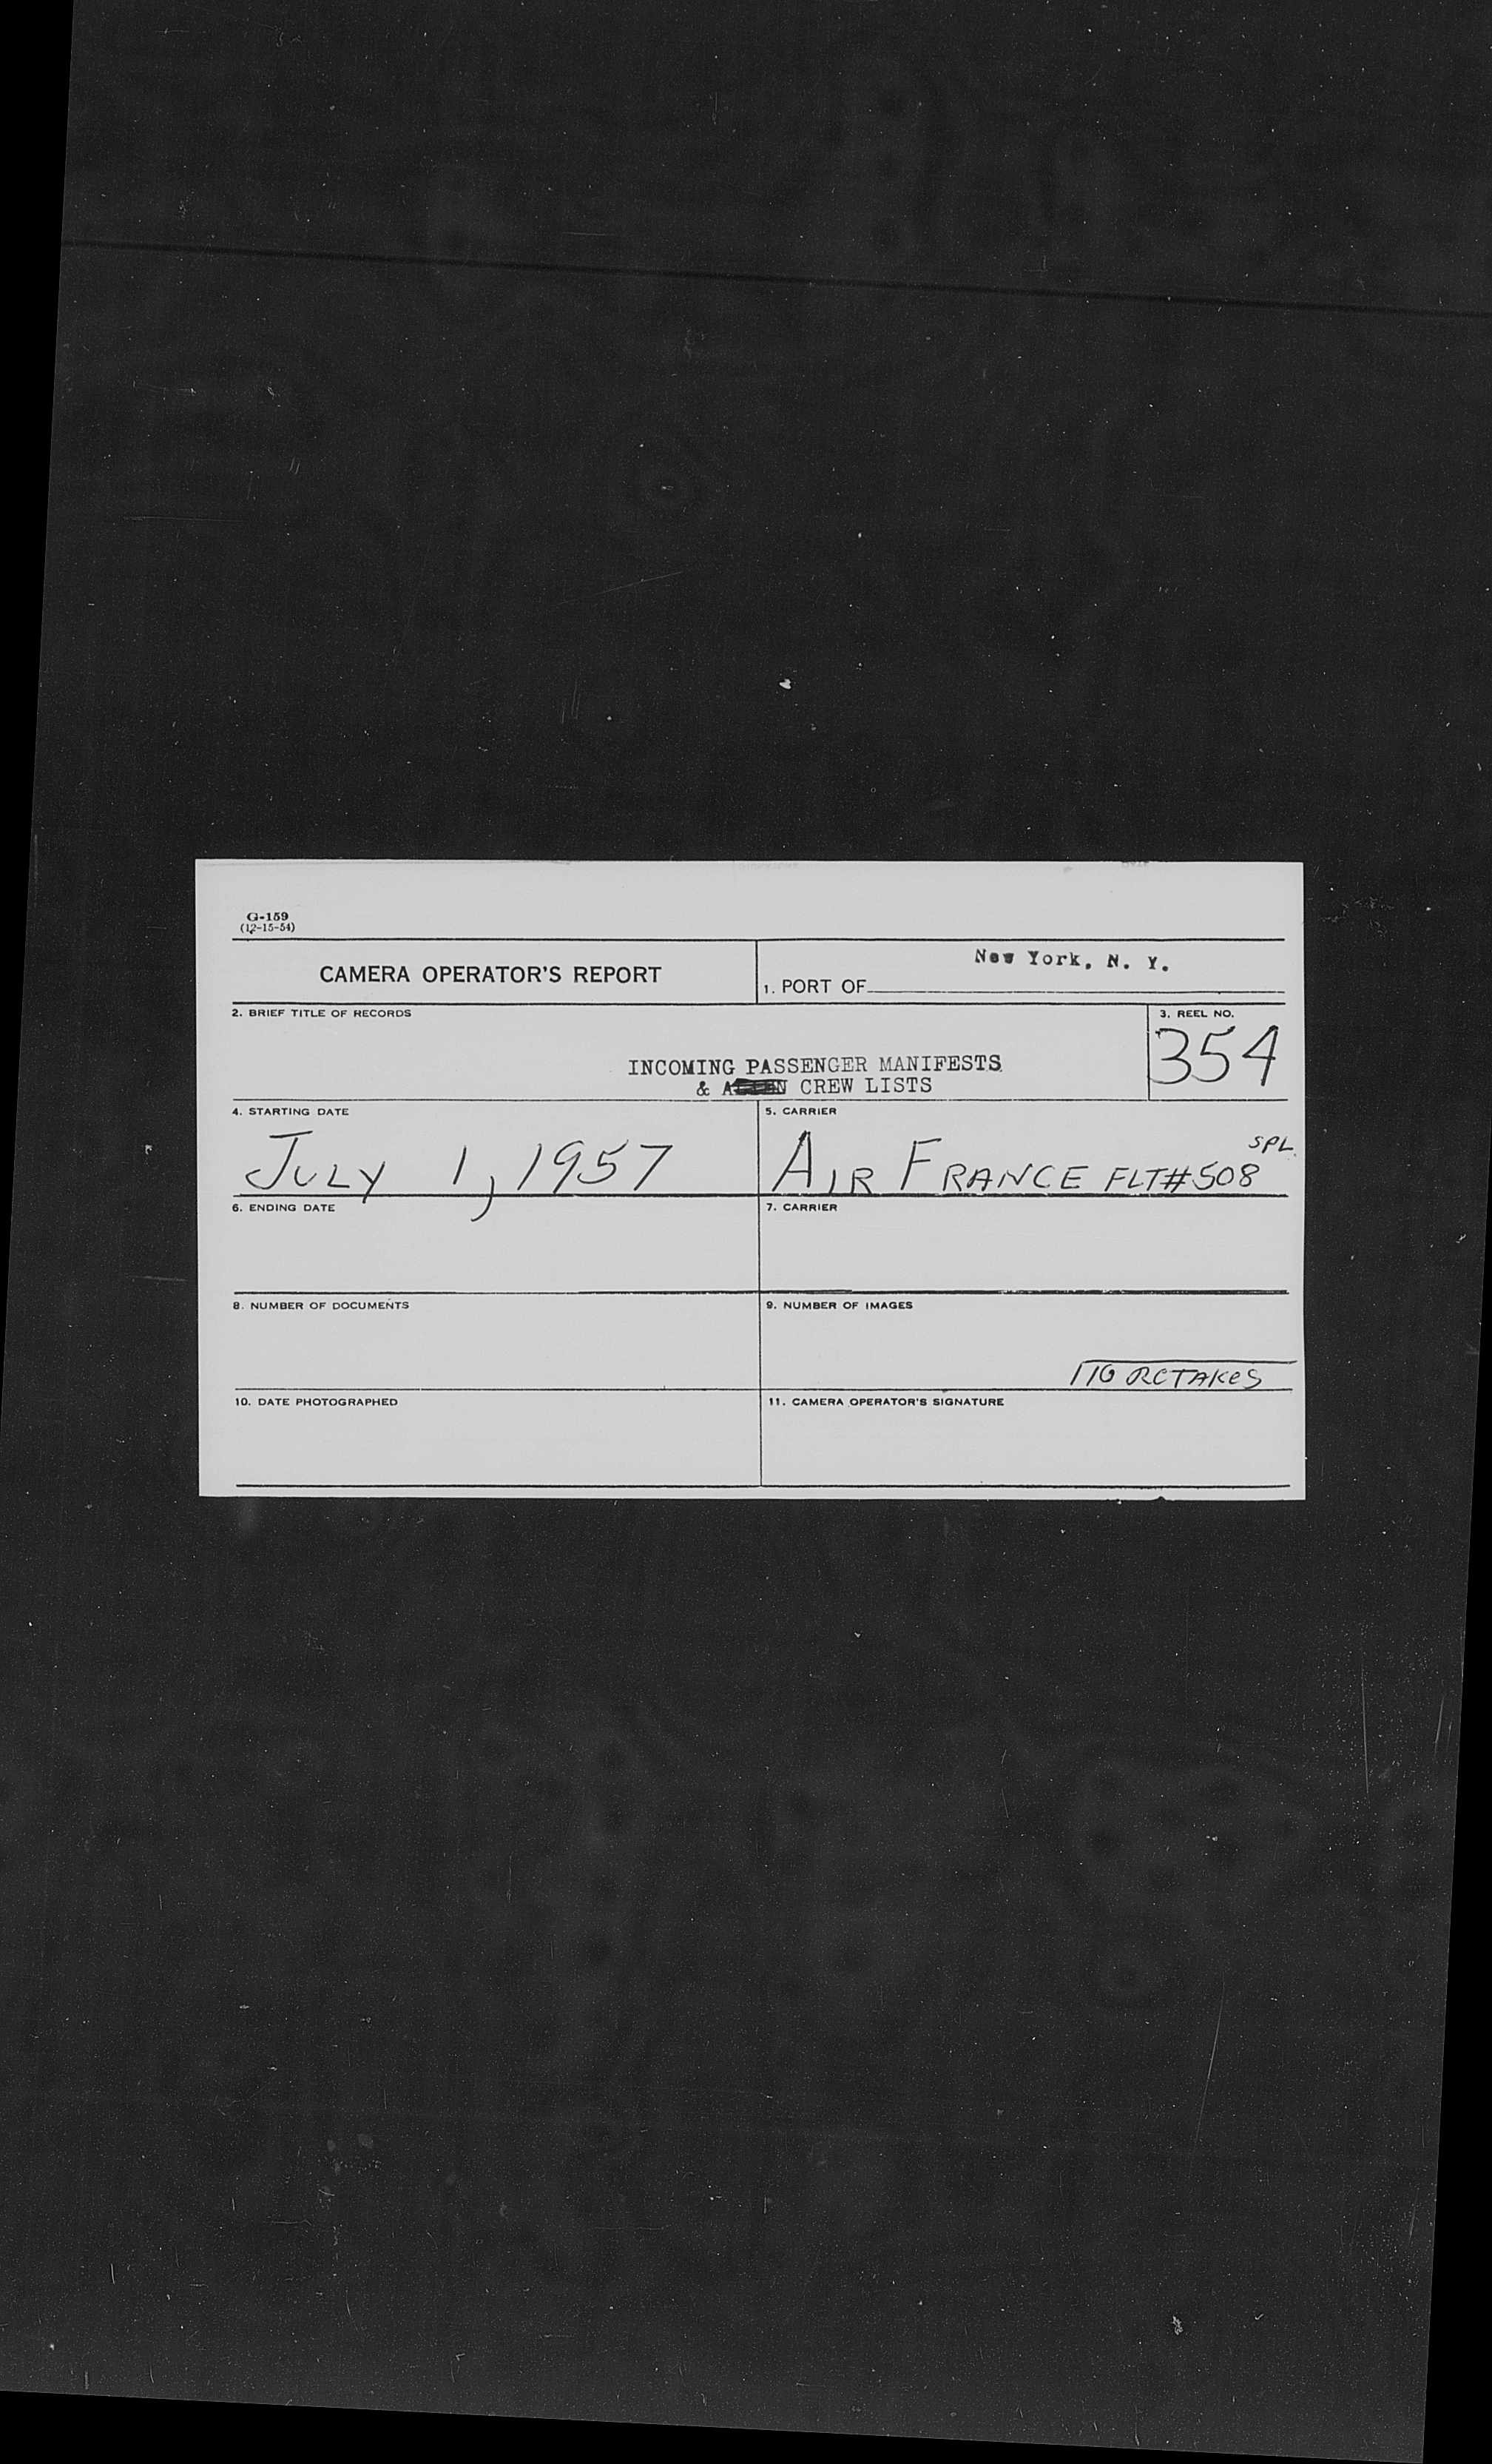 G-159
(12-15-54)
CAMERA OPERATOR'S REPORT
New York, N. Y.
1. PORT OF
2. BRIEF TITLE OF RECORDS
3. REEL NO.
354
INCOMING PASSENGER MANIFESTS
& CREW LISTS
4. STARTING DATE
JULY 1, 1957
5. CARRIER
SPL.
AIR FRANCE FLT#508
6. ENDING DATE
7. CARRIER
8. NUMBER OF DOCUMENTS
9. NUMBER OF IMAGES
RETAKES
10. DATE PHOTOGRAPHED
11. CAMERA OPERATOR'S SIGNATURE